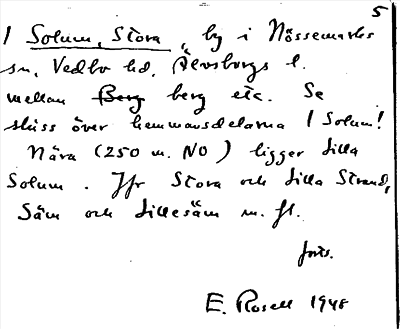 5
1 Solum, Stora, by i Nössemarks
sn, Vedbo hd, Älvsborgs l.
mellan Berg berg etc. Se
skiss över hemmansdelarna 1 Solum!
Nära (250 m. NO) ligger Lilla
Solum. Jfr Stora och Lilla Strand,
Säm och Lillesäm m. fl.
forts.
E. Rosell 1948